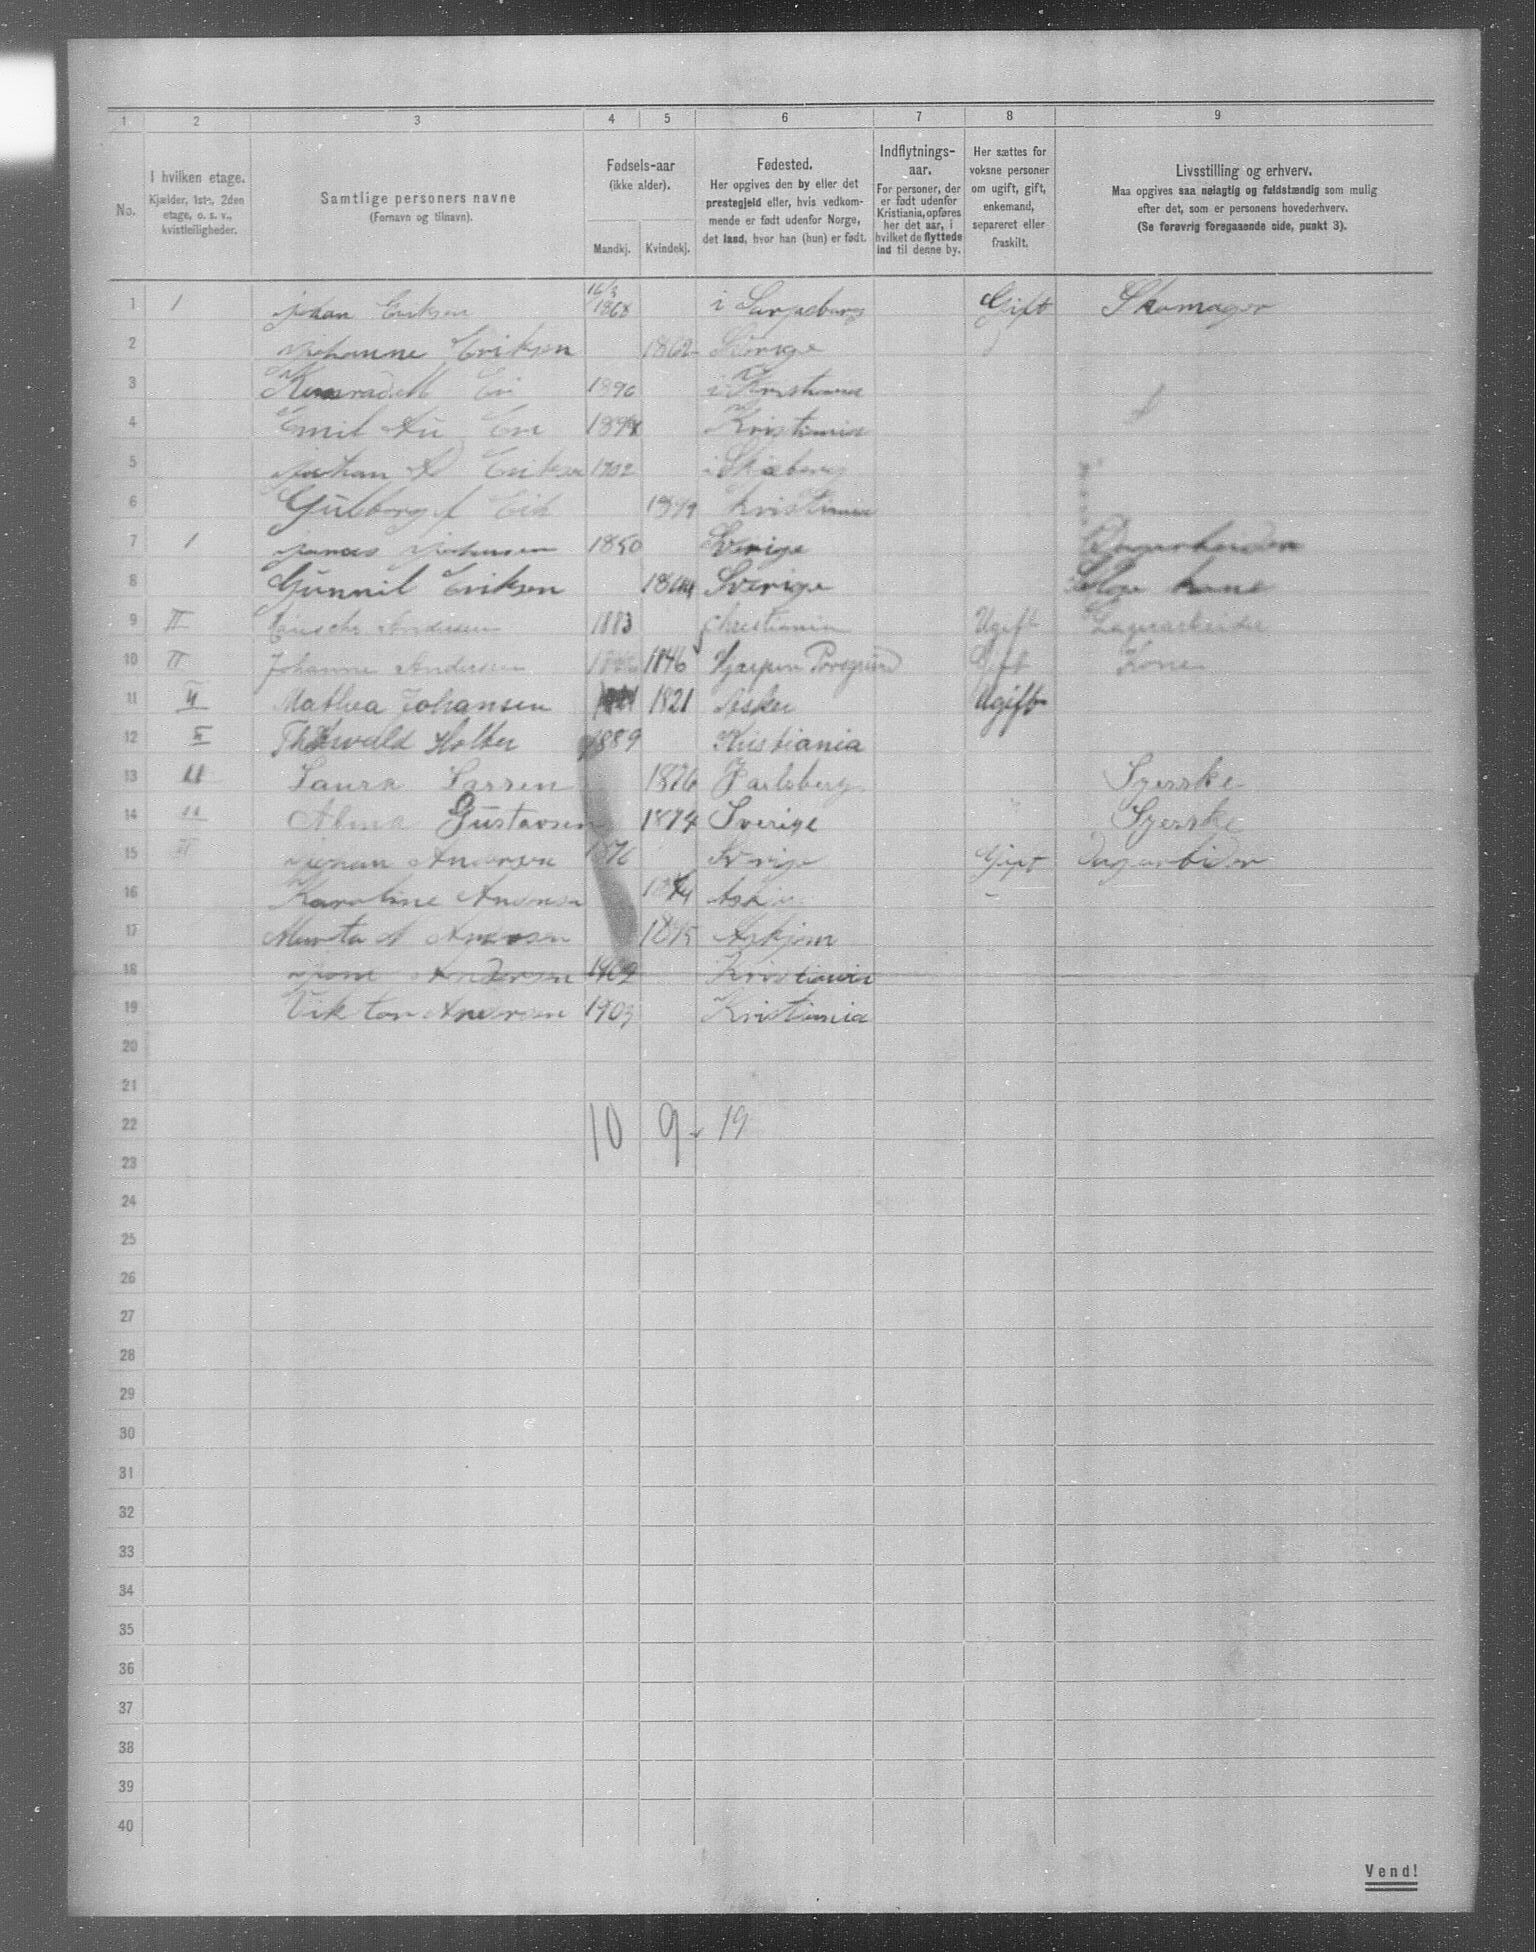 1 2 3 4 5 6 7 8 9
No.
I hvilken etage.
Kjælder, 1ste, 2den
etage, o. s. v.,
kvistleiligheder.
Samtlige personers navne
(Fornavn og tilnavn).
Fødsels-aar
(ikke alder).
Mandkj. Kvindekj.
Fødested.
Her opgives den by eller det
prestegjeld eller, hvis vedkom-
mende er født udenfor Norge,
det land, hvor han (hun) er født.
Indflytnings-
aar.
For personer, der
er født udenfor
Kristiania, opføres
her det aar, i
hvilket de flyttede
ind til denne by.
Her sættes for
voksne personer
om ugift, gift,
enkemand,
separeret eller
fraskilt.
Livsstilling og erhverv.
Maa opgives saa nøiagtig og fuldstændig som mulig
efter det, som er personens hovederhverv.
(Se forøvrig foregaaende side, punkt 3).
1 1 Johan Eriksen 16/3 1868 i Sarpsborg Gift Skomager
2 Johanne Eriksen 1862 Sverige
3 1896 i Kristiania
4 Emil Au Eri Kristiania
5 Johan A Eriksen 1902 i Skeberg
6 Gulborg Eik Kristiania
7 1 Johansen 1850 Sverige
8 Gunnil Eriksen Sverige
9 II Andersen 1883 Christiania Ugift Lagerarbeider
10 II Johanne Andersen 1846 Gjerpen Porsgrund Gift Kone
11 II Mathea Johansen 1821 Asker Ugift
12 II Thorvald Holter 1889 Kristiania
13 II Laura Larsen 1876 Jarlsberg Syerske
14 II Alma Gustavsen 1874 Sverige " Syerske
15 II Andersen 1876 Sverige Gift Dagarbider
16 Karoline Andersen
17 Andersen Askjem
18 Andersen Kristiania
19 Viktor Andersen 1903 Kristiania
20
21
22 10 9 19
23
24
25
26
27
28
29
30
31
32
33
34
35
36
37
38
39
40
Vend!